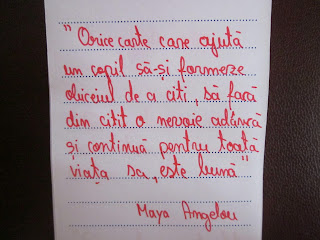 "Orice carte care ajută
un copil să-și formeze
obiceiul de a citi, să facă
din citit o nevoie adâncă
și continuă pentru toată
viața sa, este bună"
Maya Angelou